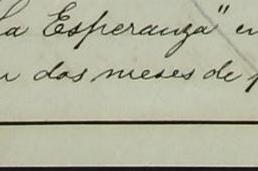 La Esperanza" en
n dos meses de p